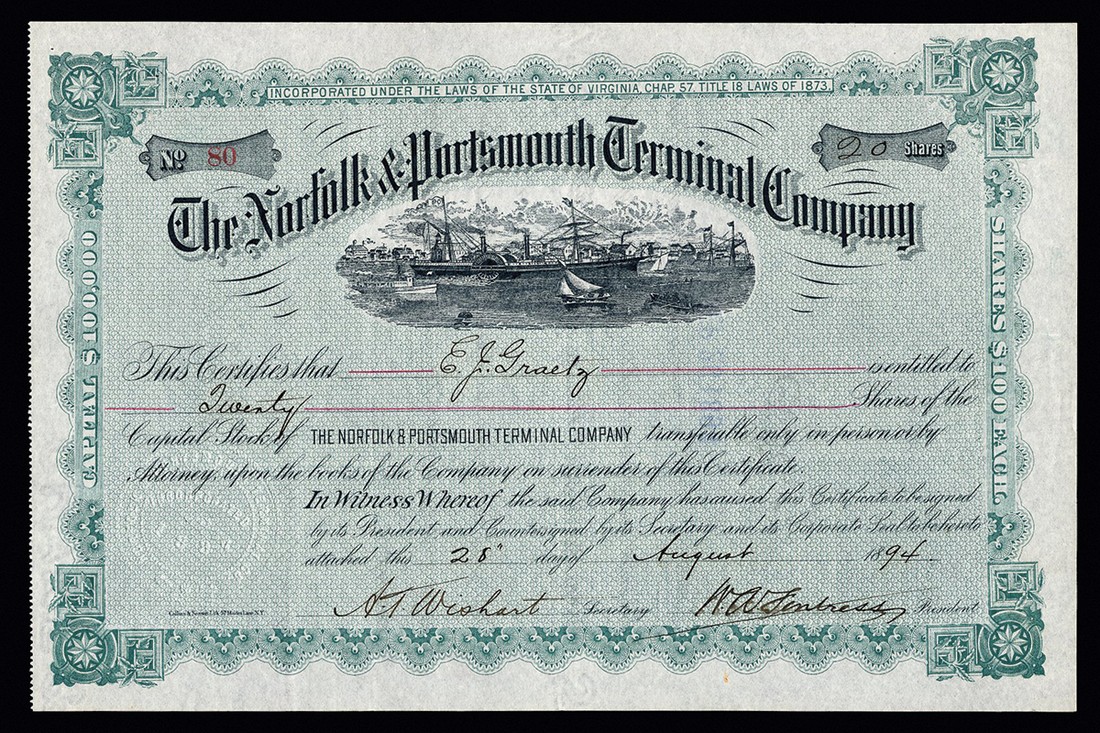 INCORPORATED UNDER THE LAWS OF THE STATE OF VIRGINIA, CHAP. 57. TITLE 18 LAWS OF 1873.
No 80
20 Shares
The Norfolk & Portsmouth Terminal Company
CAPITAL $100,000
SHARES $100 EACH.
This Certifies that E. J. Graetz is entitled to
Twenty Shares of the
Capital Stock of THE NORFOLK & PORTSMOUTH TERMINAL COMPANY transferable only in person or by
Attorney, upon the books of the Company on surrender of this Certificate.
In Witness Whereof the said Company has caused this Certificate to be signed
by its President and Countersigned by its Secretary and its Corporate Seal to be hereto
attached this 28" day of August 1894
A T Wishart Secretary W W Fentress President